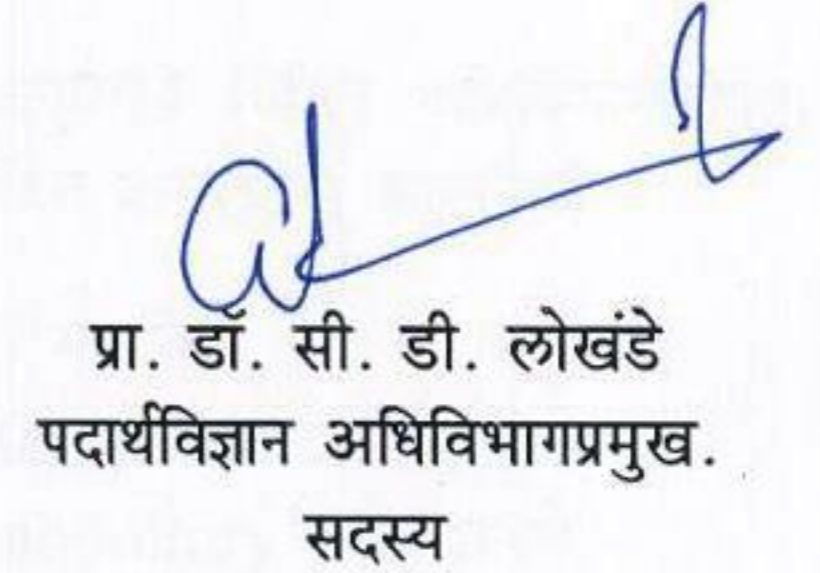 प्रा. डॉ. सी. डी. लोखंडे
पदार्थविज्ञान अधिविभागप्रमुख.
सदस्य